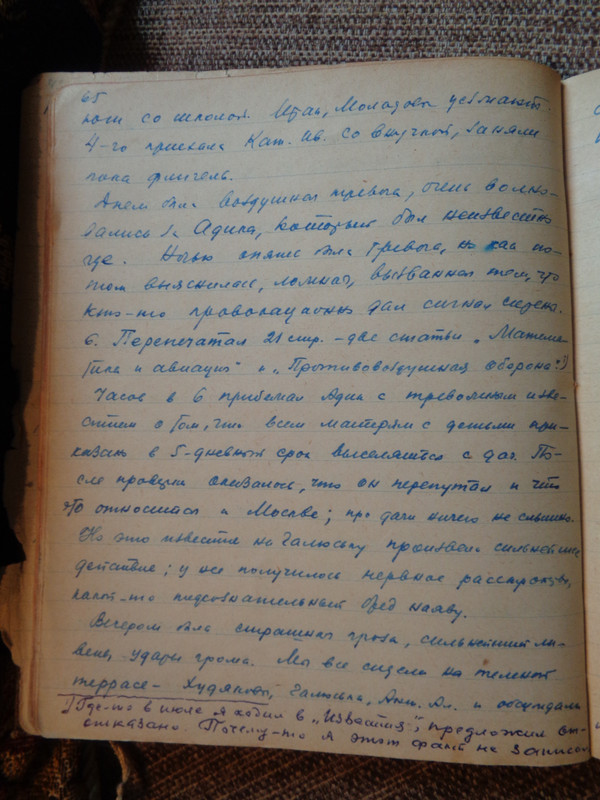 65
ют со школой. Итак, Молодовы уезжают.
4-го приехала Кат. Ив. со внучкой, заняли
пока флигель.
Днем была воздушная тревога, очень волно-
вались за Адика, который был неизвестно
где. Ночью опять была тревога, но как по-
том выяснилось, ложная, вызванная тем, что
кто-то провокационно дал сигнал сирена.
6. Перепечатал 21 стр. - две статьи „Матема-
тика и авиация" и „Противовоздушная оборона".1)
Часов в 6 прибежал Адик с тревожным изве-
стием о том, что всем матерям с детьми при-
казано в 5-дневный срок выселяться с дач. По-
сле проверки оказалось, что он перепутал и что
это относится к Москве; про дачи ничего не слышно.
Но это известие на Галюську произвело сильнейшее
действие; у нее получилось нервное расстройство,
какой-то подсознательный бред наяву.
Вечером была страшная гроза, сильнейший ли-
вень, удары грома. Мы все сидели на темной
террасе - Худяковы, Галюська, Анн. Ал. и обсуждали
1) Где-то в июле я ходил в „Известия", предложил ст-
отказано. Почему-то я этот факт не записал